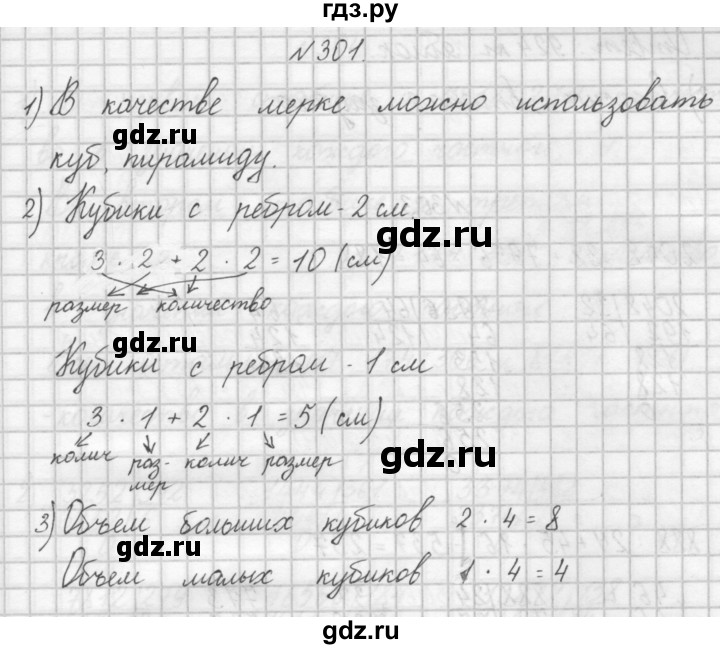 гдз.ру
№301.
1) В качестве мерке можно использовать
gdz.ru gdz.ru
куб, пирамиду.
2) Кубики с ребром - 2 см.
gdz.ru
3 · 2 + 2 · 2 = 10 (см)
размер количество
gdz.ru
Кубики с ребром - 1 см
3 · 1 + 2 · 1 = 5 (см)
колич раз- колич размер
мер
gdz.ru
3) Объем больших кубиков 2 · 4 = 8
gdz.ru
Объем малых кубиков 1 · 4 = 4
gdz.ru